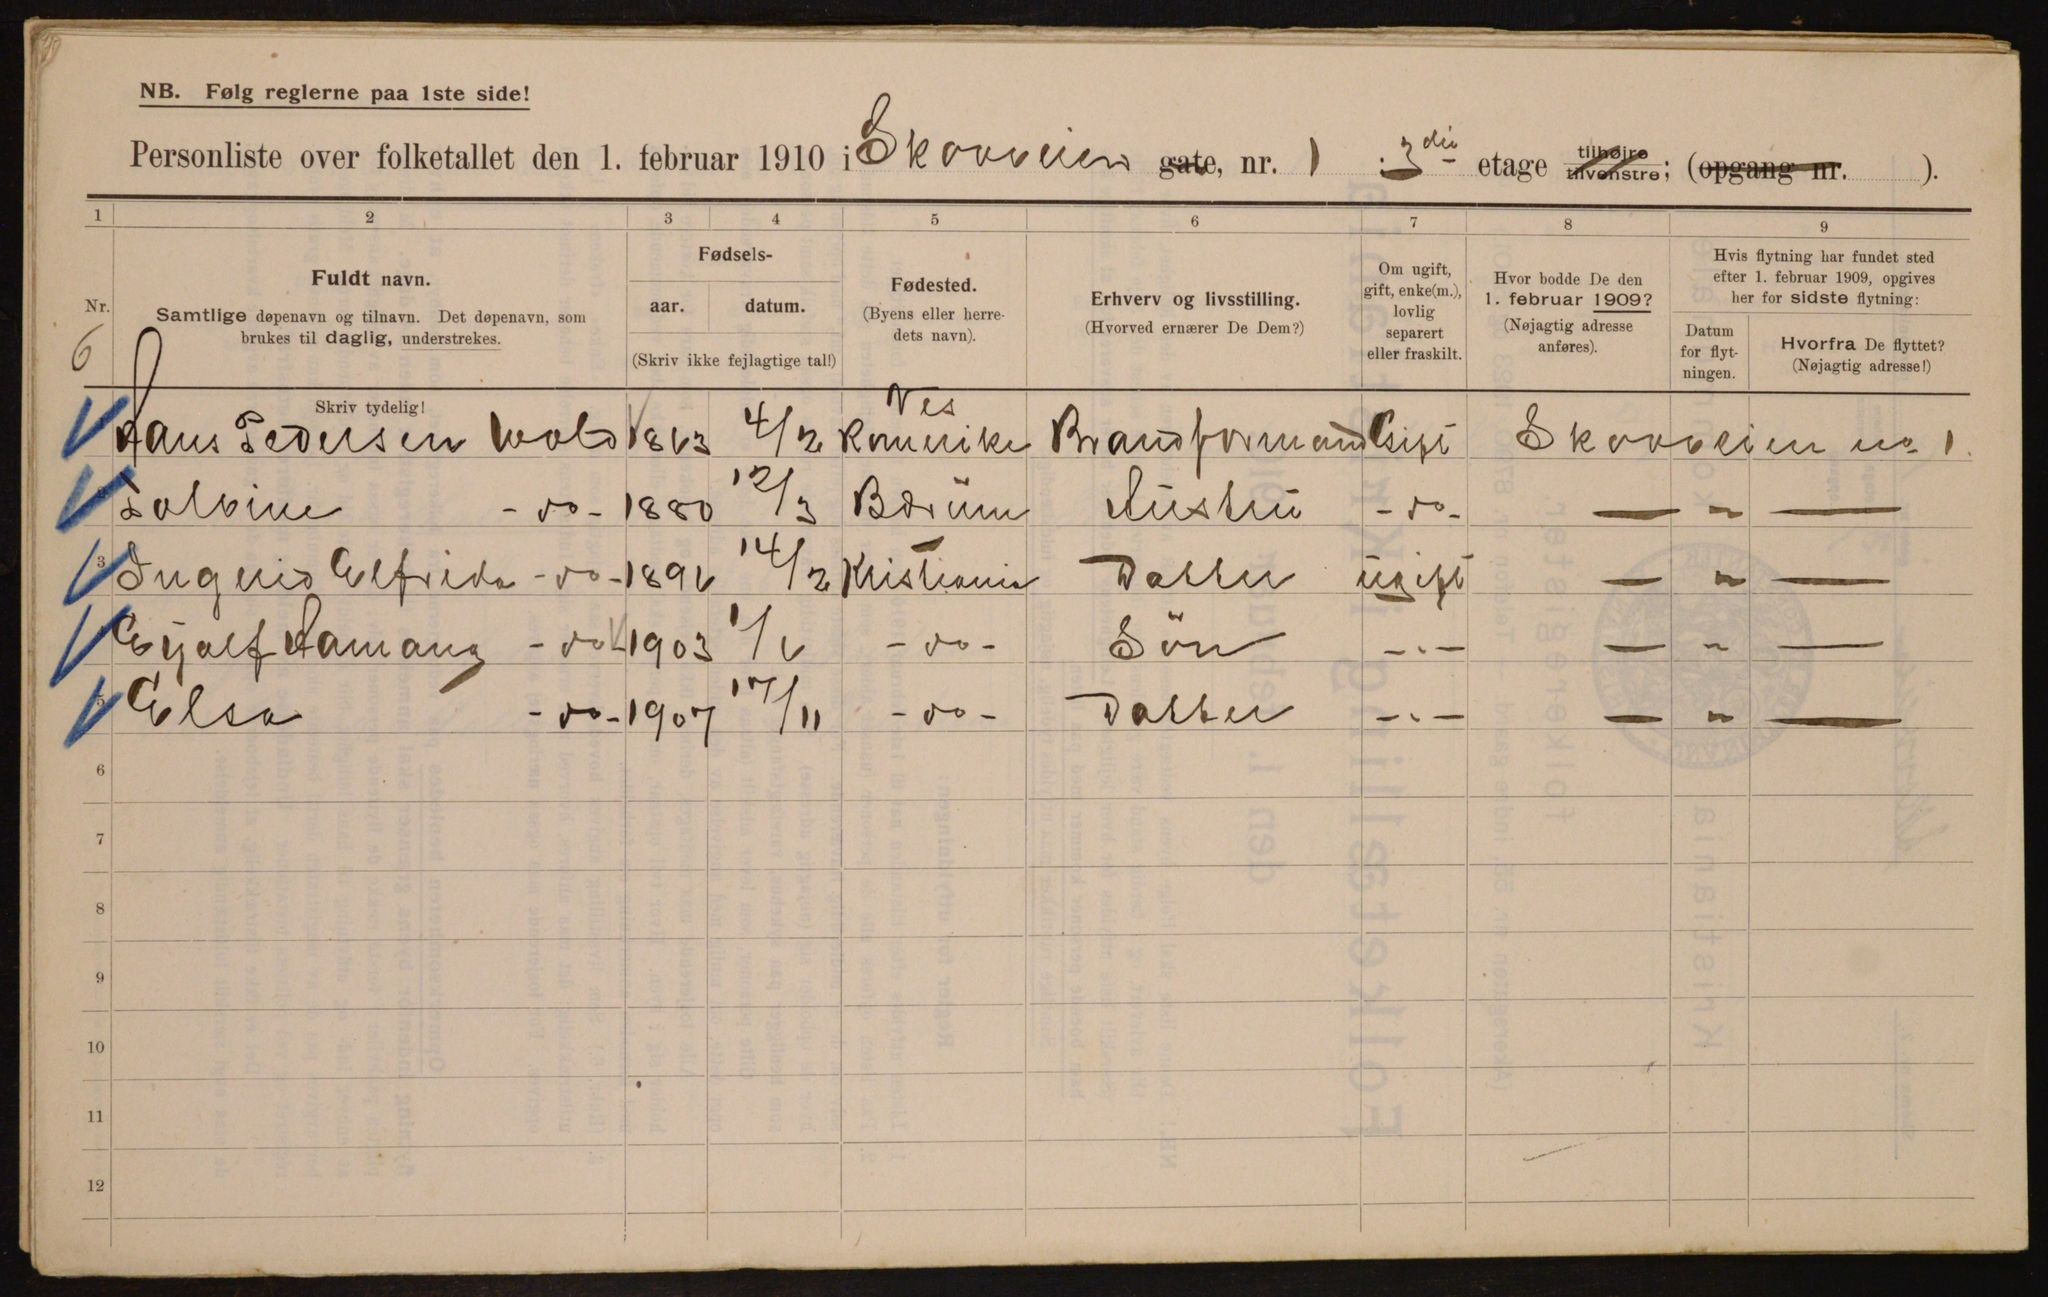 NB. Følg reglerne paa 1ste side!
Personliste over folketallet den 1. februar 1910 i Skovveien gate, nr. 1 : 3die etage tilhøjre tilvenstre; (opgang nr. ).
1 2 3 4 5 6 7 8 9
Nr.
6
Fuldt navn.
Samtlige døpenavn og tilnavn. Det døpenavn, som
brukes til daglig, understrekes.
Fødsels-
aar. datum.
(Skriv ikke fejlagtige tal!)
Fødested.
(Byens eller herre-
dets navn).
Erhverv og livsstilling.
(Hvorved ernærer De Dem?)
Om ugift,
gift, enke(m.),
lovlig
separert
eller fraskilt.
Hvor bodde De den
1. februar 1909?
(Nøjagtig adresse
anføres).
Hvis flytning har fundet sted
efter 1. februar 1909, opgives
her for sidste flytning:
Datum
for flyt-
ningen.
Hvorfra De flyttet?
(Nøjagtig adresse!)
Skriv tydelig!
Hans Pedersen Wold 1863 4/2 Nes Romerike Brandformand Gift Skovveien no 1.
Solvine - do - 1880 12/3 Bærum Hustru - do - — " —
3 Ingrid Elfrida - do - 1896 14/2 Kristiania Datter ugift — " —
Eyolf - do - 1903 1/6 - do - Sön - " - — " —
5 Elsa - do - 1907 17/11 - do - Datter - " - — " —
6
7
8
9
10
11
12